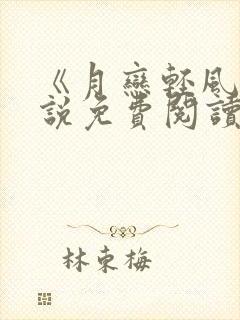 《月戀輕風
說免費閱讀
林東梅